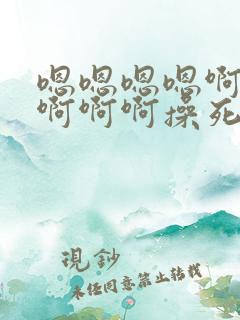 嗯嗯嗯嗯啊
啊啊啊操死
现钞
未经同意禁止转载